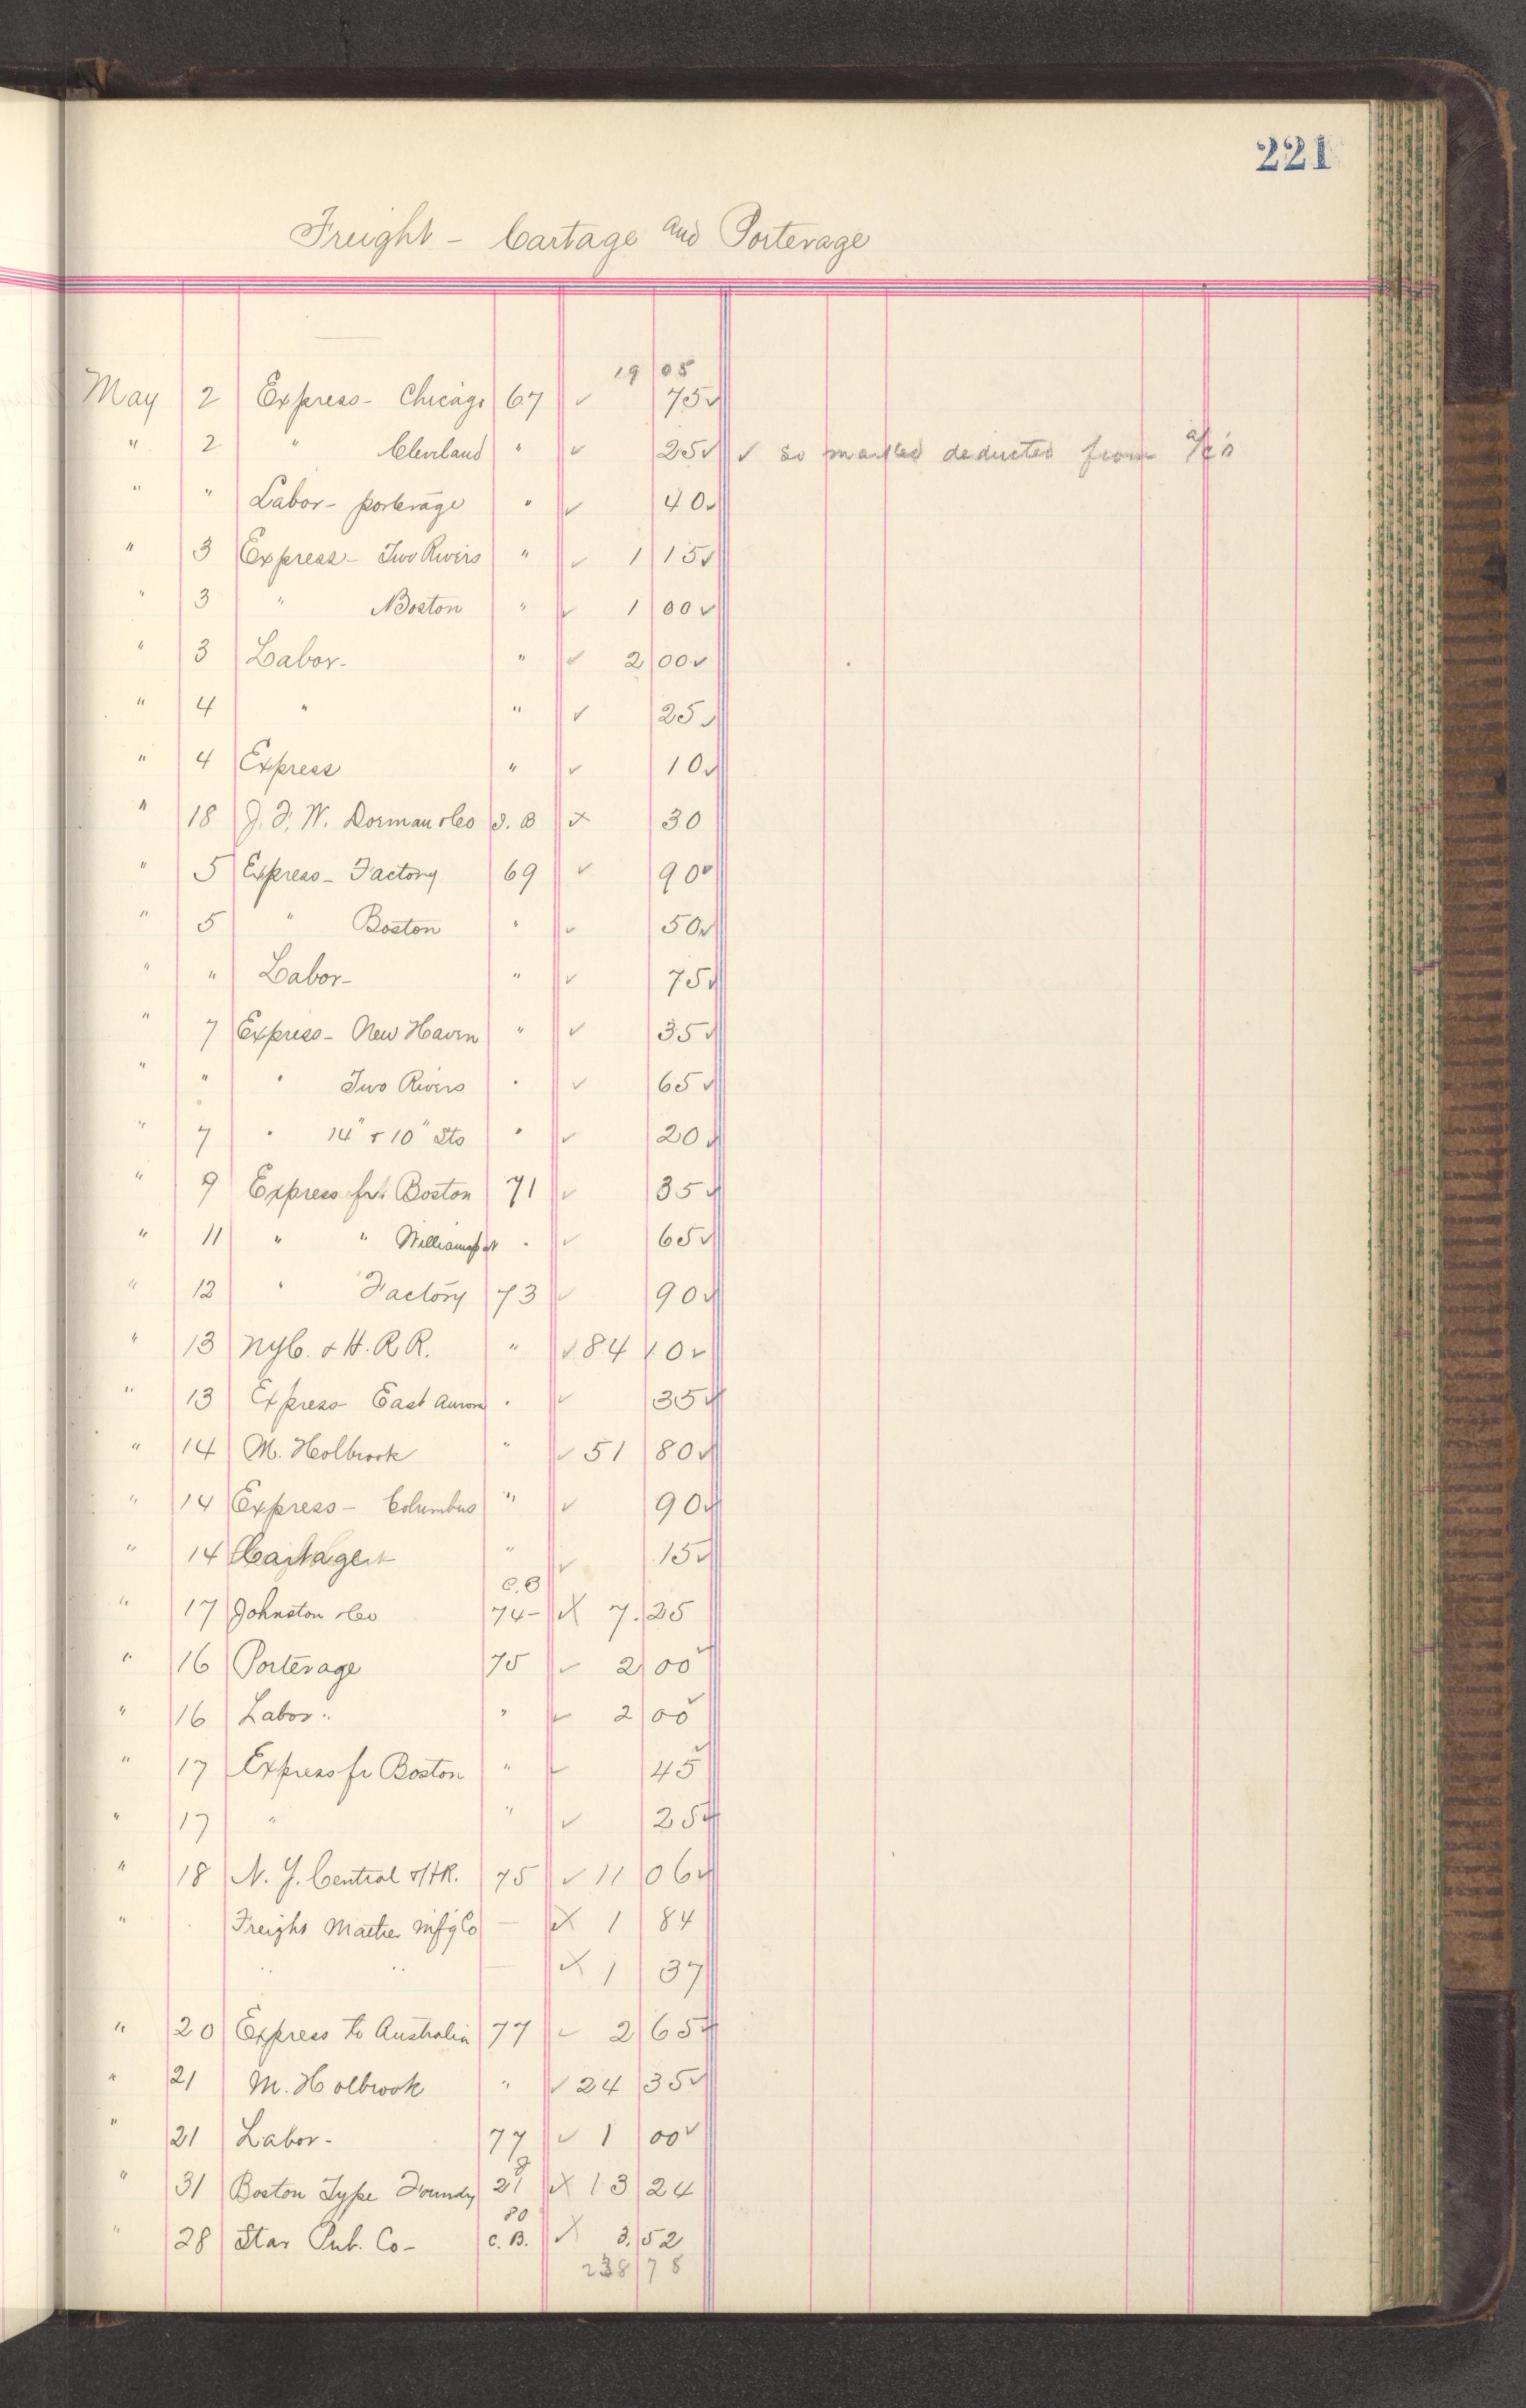 221
Freight - Cartage and Porterage
19 05
May 2 Express - Chicago 67 ✓ 75 ✓
" 2 " Cleveland " ✓ 25 ✓ ✓ so marked deducted from a/c's
" " Labor - porterage " ✓ 40 ✓
" 3 Express - Two Rivers " ✓ 1 15 ✓
" 3 " Boston " ✓ 1 00 ✓
" 3 Labor - " ✓ 2 00 ✓
" 4 " " ✓ 25 ✓
" 4 Express " ✓ 10 ✓
" 18 J. F. W. Dorman & Co I. B X 30
" 5 Express - Factory 69 ✓ 90 ✓
" 5 " Boston " ✓ 50 ✓
" " Labor - " ✓ 75 ✓
" 7 Express - New Haven " ✓ 35 ✓
" " " Two Rivers " ✓ 65 ✓
" 7 " 14" & 10" Sts " ✓ 20 ✓
" 9 Express frt Boston 71 ✓ 35 ✓
" 11 " " Williamsport " ✓ 65 ✓
" 12 " Factory 73 ✓ 90 ✓
" 13 NYC. & H. R R. " ✓ 84 10 ✓
" 13 Express East Aurora " ✓ 35 ✓
" 14 M. Holbrook " ✓ 51 80 ✓
" 14 Express - Columbus " ✓ 90 ✓
" 14 Cartage " ✓ 15 ✓
" 17 Johnston & Co C. B 74 - X 7. 25
" 16 Porterage 75 ✓ 2 00 ✓
" 16 Labor " " ✓ 2 00 ✓
" 17 Express fr Boston " ✓ 45 ✓
" 17 " " ✓ 25 ✓
" 18 N. Y. Central & HR. 75 ✓ 11 06 ✓
" Freight Mfg Co — X 1 84
" " — X 1 37
" 20 Express to Australia 77 ✓ 2 65 ✓
" 21 M. Holbrook " ✓ 24 35 ✓
" 21 Labor - 77 ✓ 1 00 ✓
" 31 Boston Type Foundry 21 X 13 24
" 28 Star Pub. Co - 80 C. B. X 3. 52
238 78